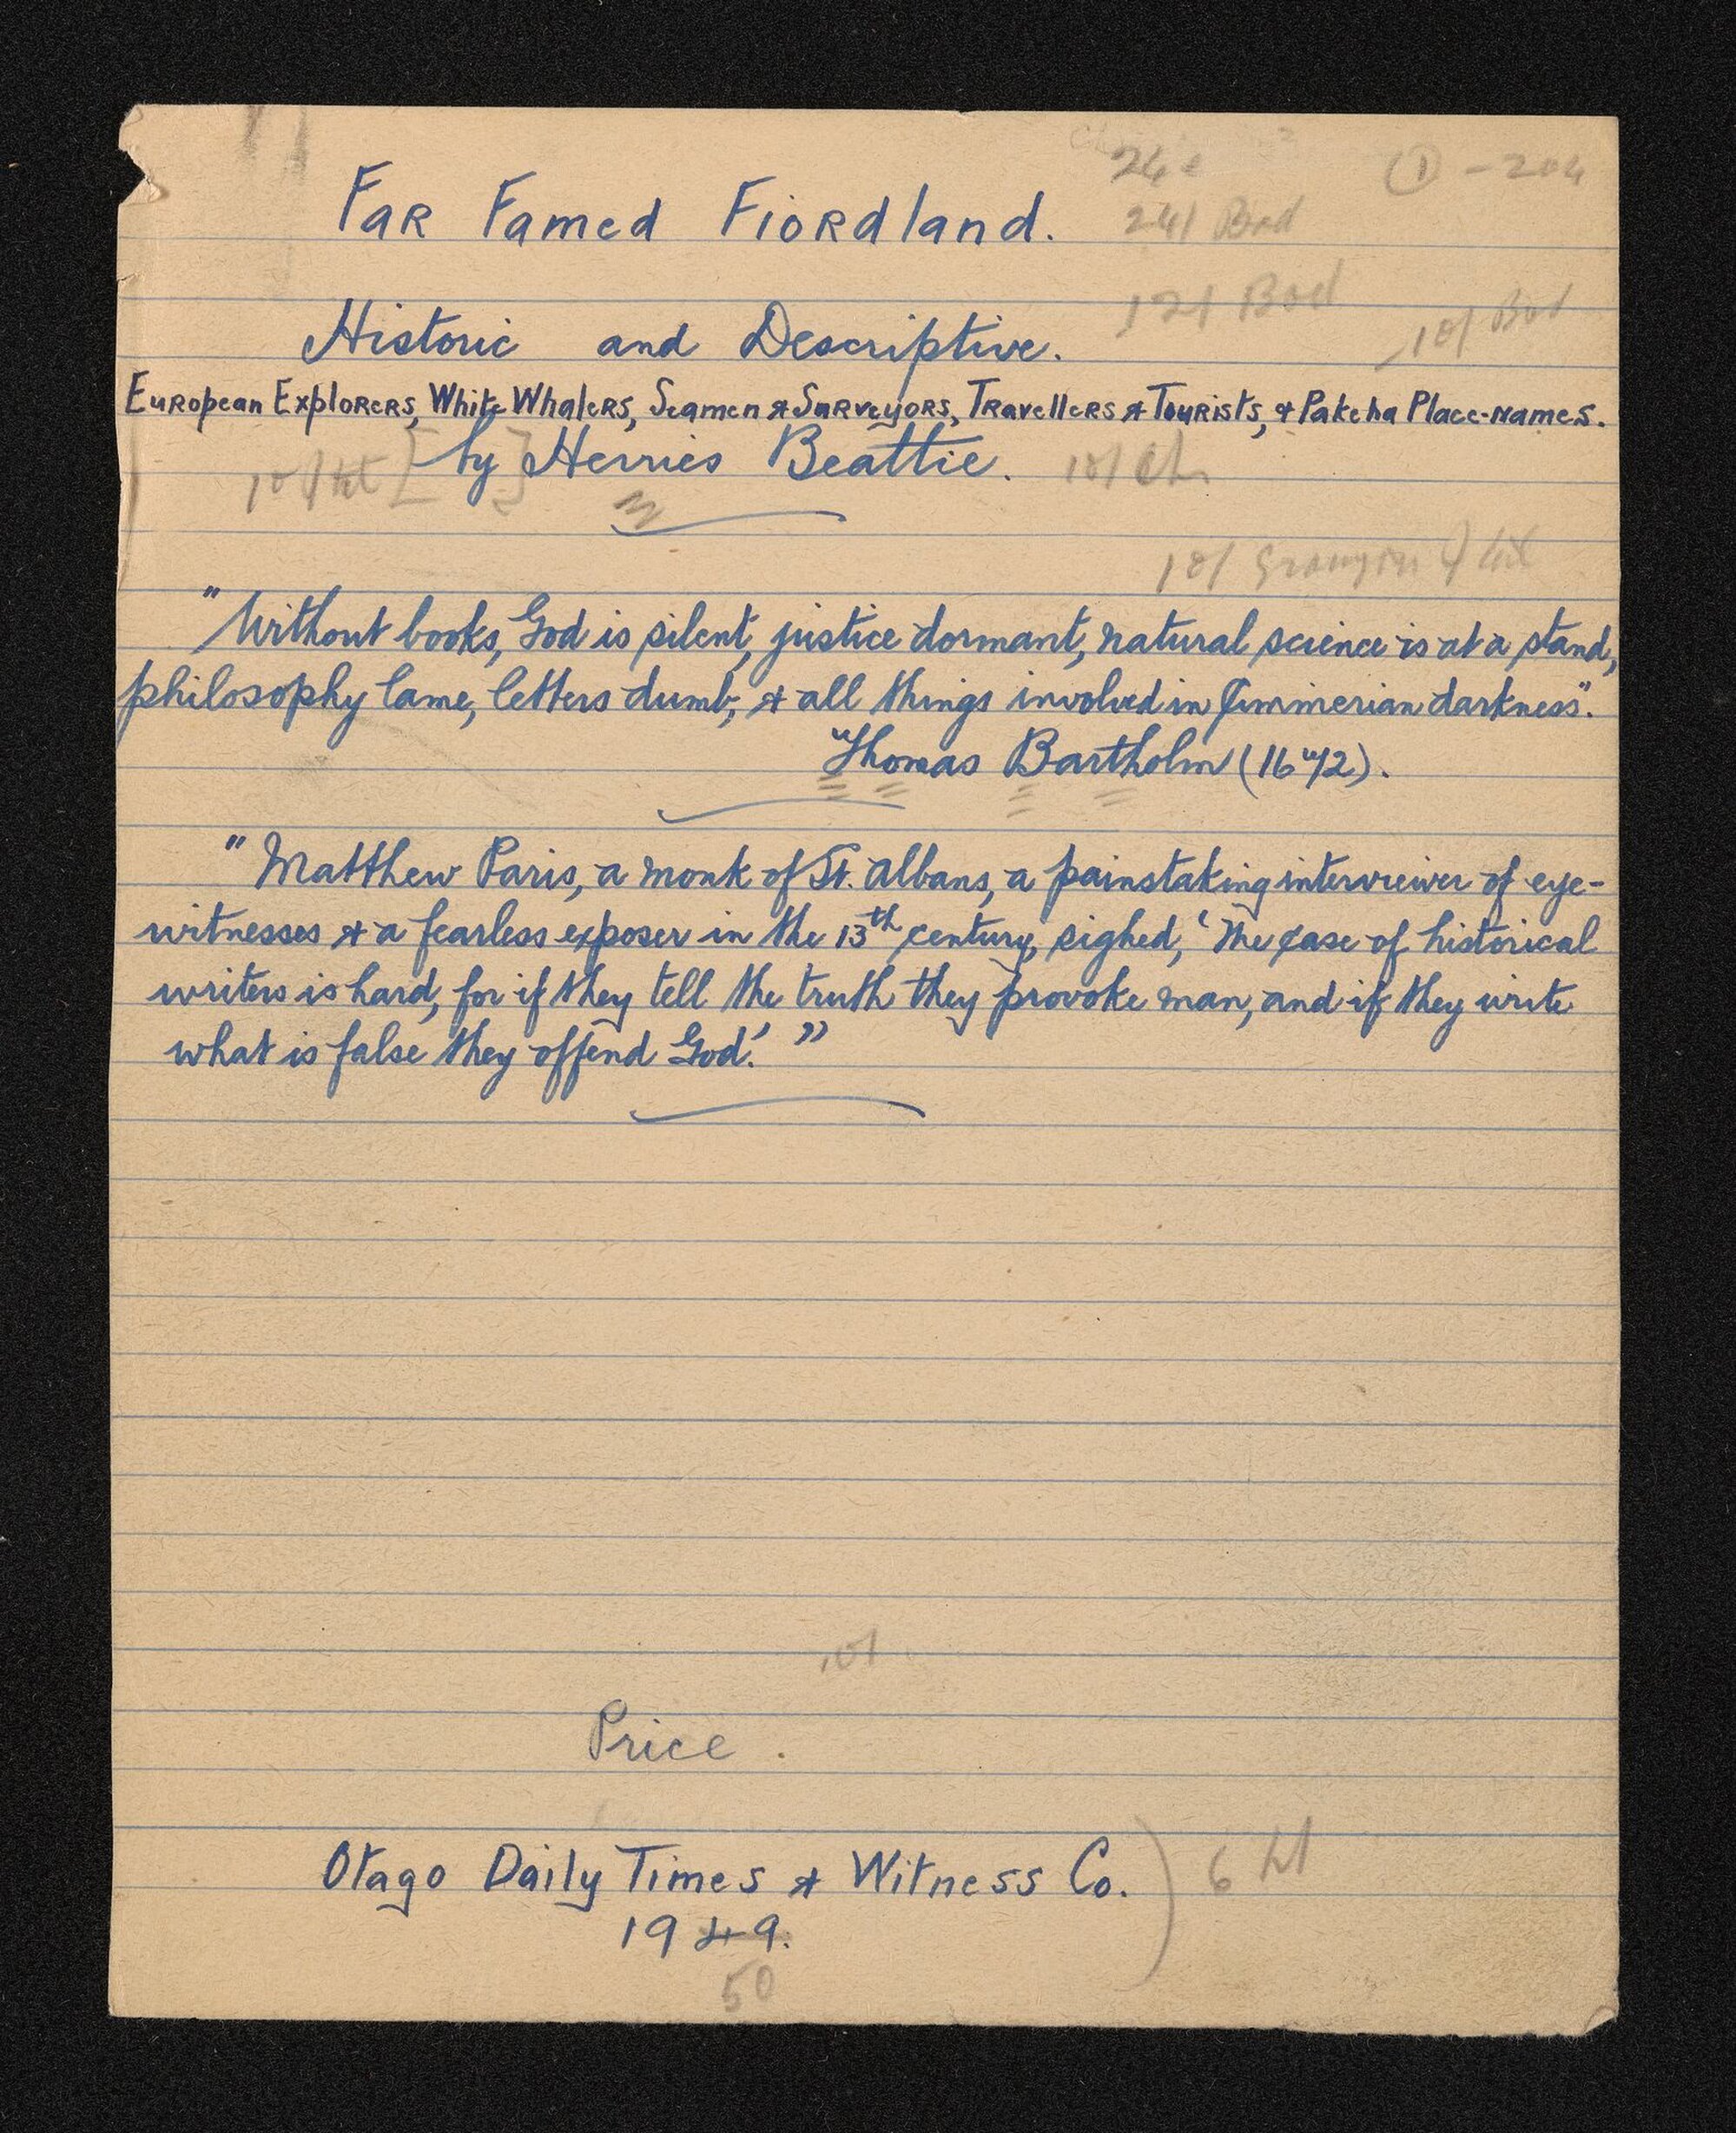 ① - 204
24
Far Famed Fiordland.
24/ Bod
12/ Bod
10/ Bod
Historic and Descriptive.
European Explorers, White Whalers, Seamen & Surveyors, Travellers & Tourists, & Pakeha Place-names.
[by] Herries Beattie.
"Without books, God is silent, justice dormant, natural science is at a stand,
philosophy lame, letters dumb, & all things involved in Cimmerian darkness".
Thomas Bartholm (1672).
"Matthew Paris, a monk of St. Albans, a painstaking interviewer of eye-
witnesses & a fearless exposer in the 13th century, sighed, 'The case of historical
writers is hard, for if they tell the truth they provoke man, and if they write
what is false they offend God.' "
10/
Price .
Otago Daily Times & Witness Co.
1949.
50